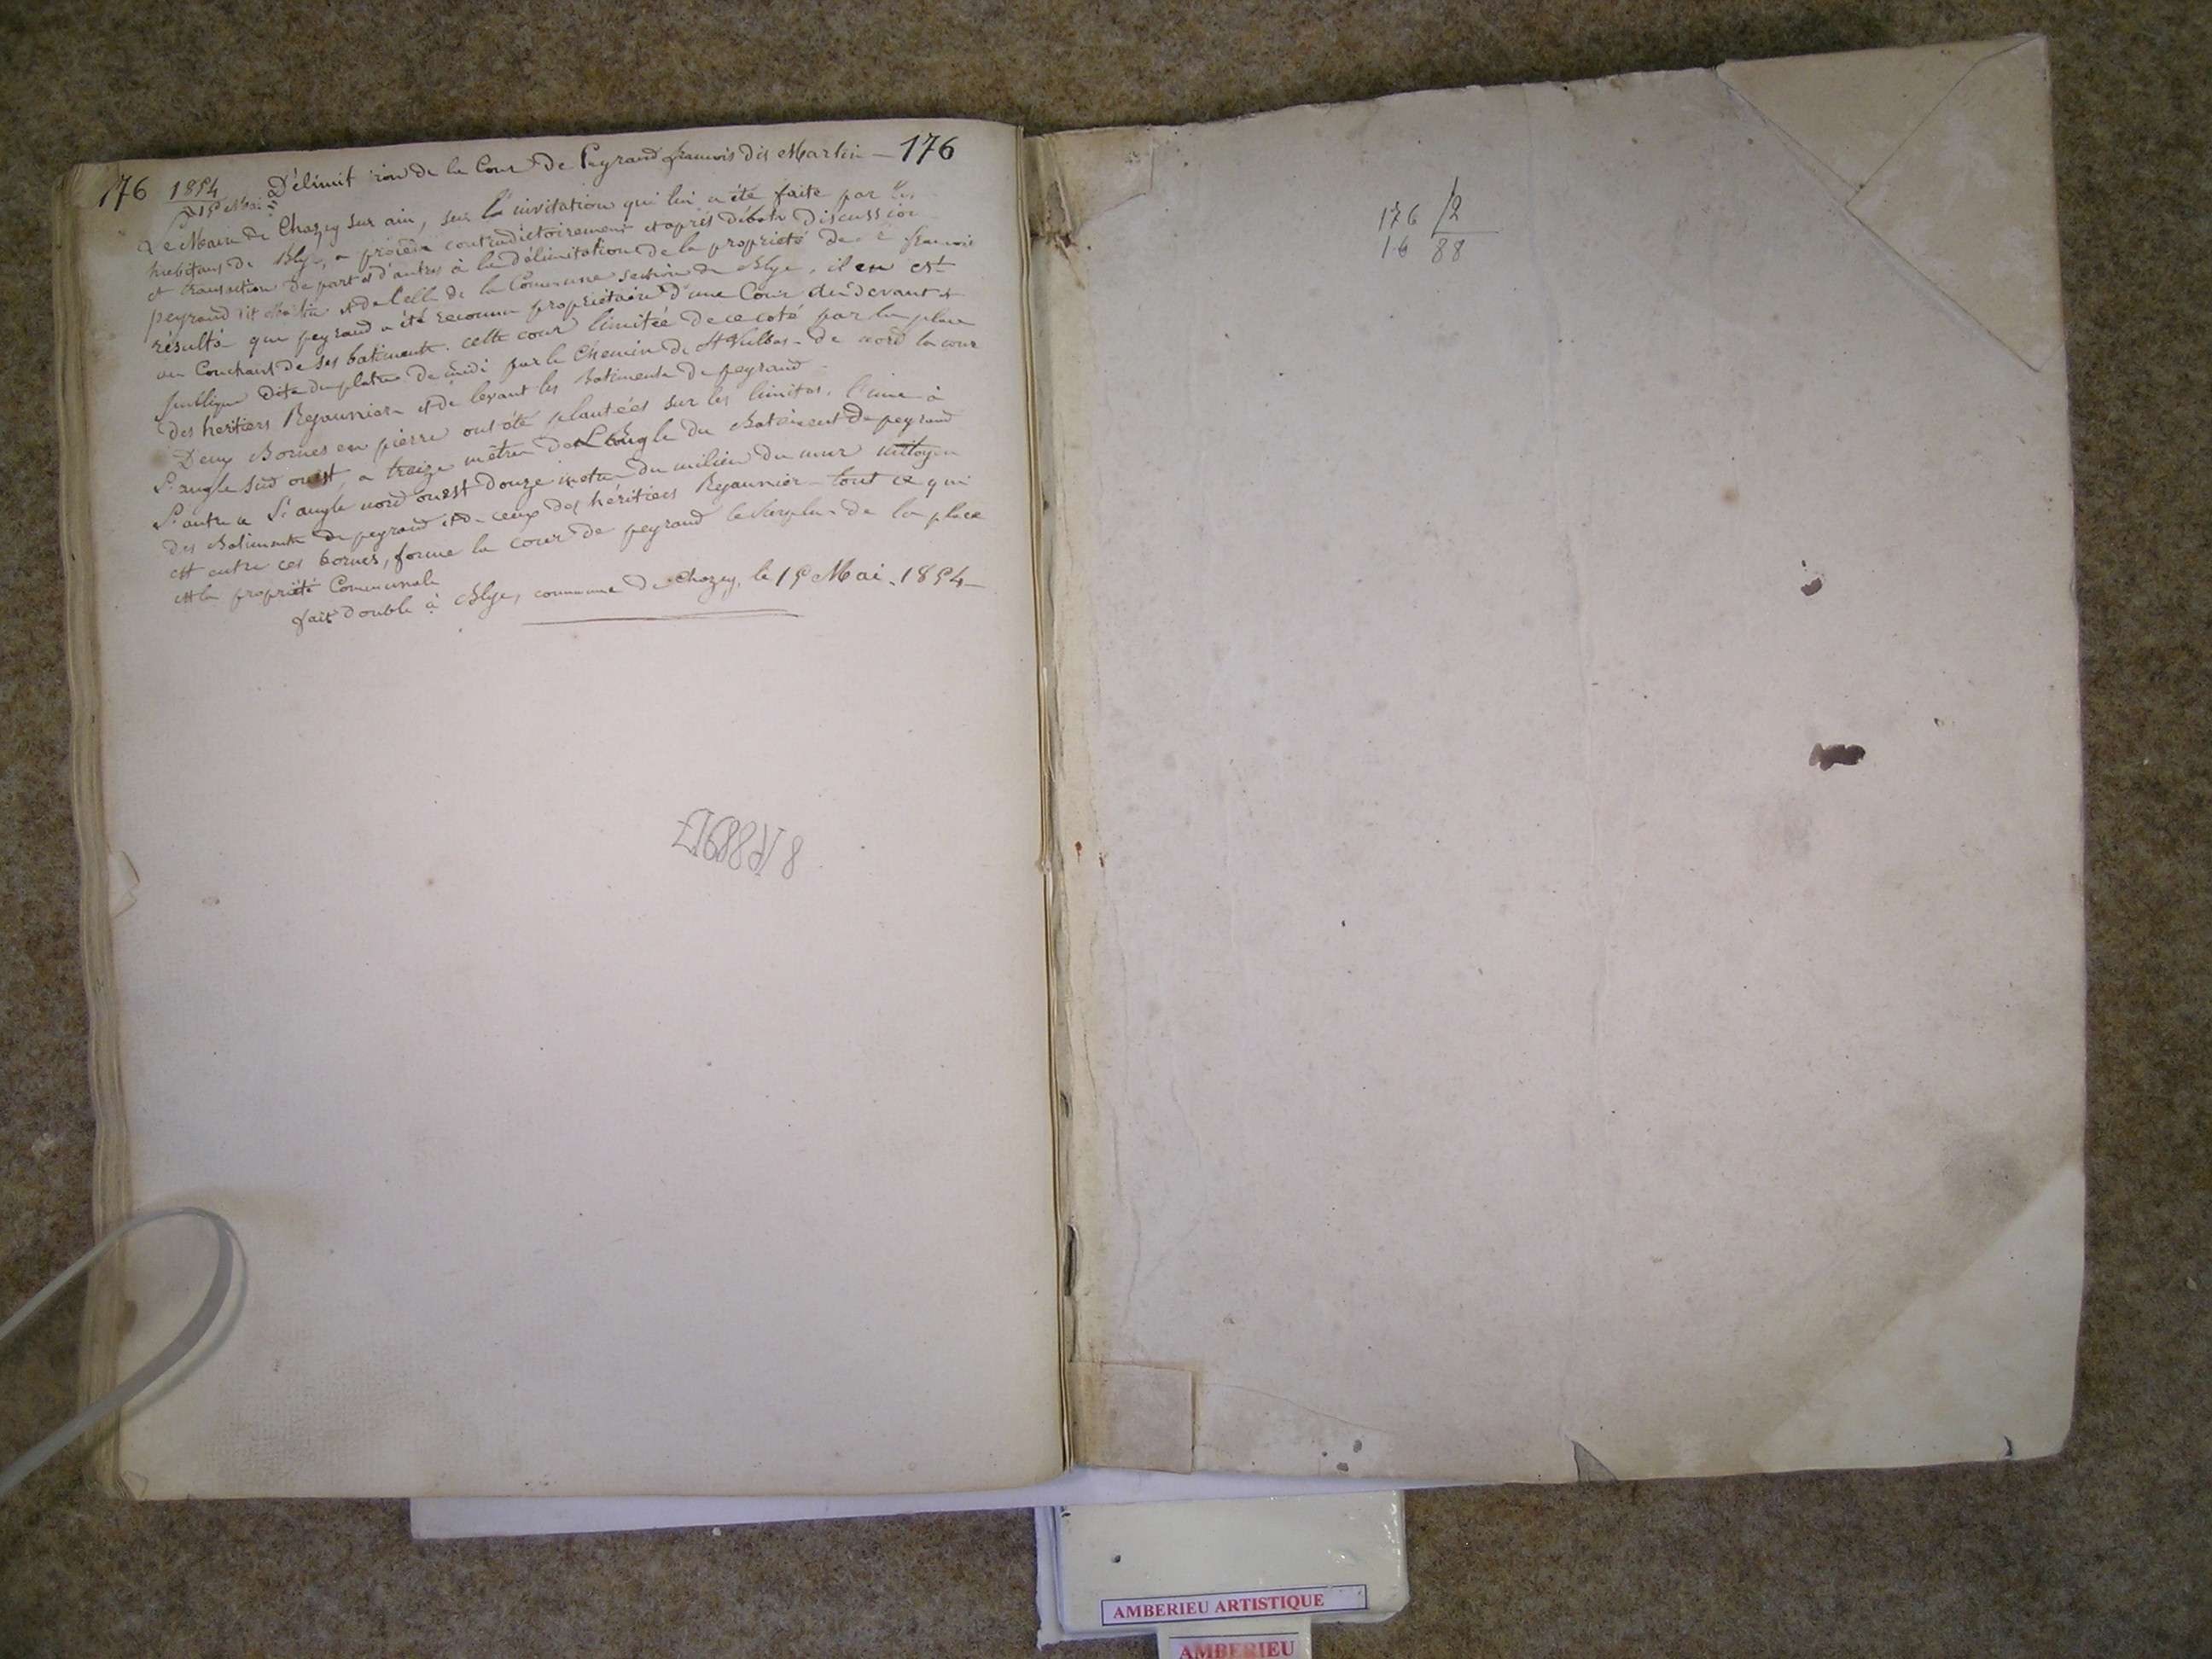 176 1854 Délimitation de la Cour de Peyrand francois dit Martin — 176
15 Mai
Le Maire de Chazey sur ain, sur l'invitation qui lui a été faite par les
habitans de Blye, a procédé contradictoirement et après débats discussion
et transaction de part et d'autres à la délimitation de la propriété de francois
peyrand dit Martin et de Celle de la Commune section de Blye, il en est
résulté que peyrand a été reconnu propriétaire d'une Cour au devant et
au Couchant de ses batiments. cette cour limitée de ce coté par la place
publique dite du platre de midi par le Chemin de St Vulbas - de nord la cour
des heritiers Rejaunier et de levant les Batiments de peyrand
Deux Bornes en pierre ont été plantées sur les limites. l'une à
L'angle sud ouest, a treize mètres de L'angle du Batiment de peyrand
L'autre a L'angle nord ouest douze mètres du milieu du mur mitoyen
des Batiments de peyrand et de ceux des héritiers Rejaunier - tout ce qui
est entre ces bornes, forme la cour de peyrand le surplus de la place
est la propriété Communale
fait double à Blye, commune de Chazey, le 15 Mai. 1854 —
176 2
16 88
AMBERIEU ARTISTIQUE
AMBERIEU